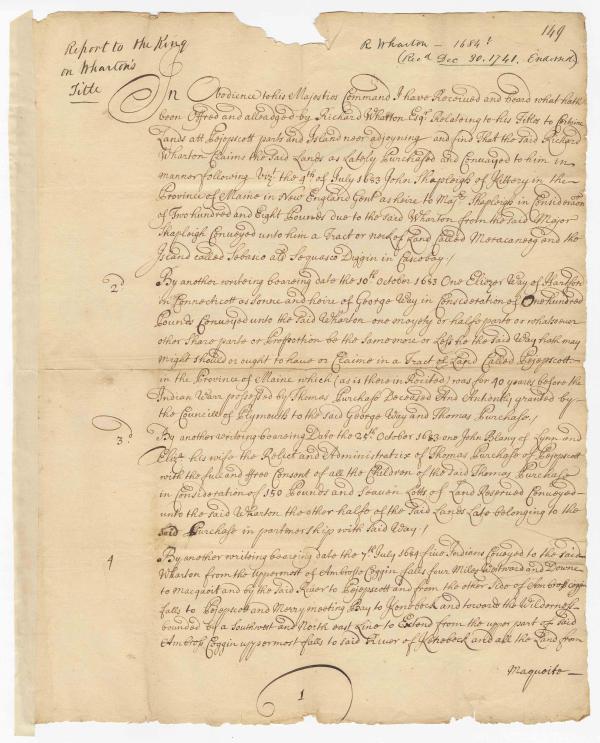 149
Report to the King
on Wharton's
Title
R Wharton – 1684.
(Rec'd Dec 30. 1741. Endorsd)
In Obedience to his Majesties Command I have Received and heard what hath
been Offred and alleadged by Richard Wharton Esqr. Relateing to his Titles to Certaine
Lands att Pejepscott parts and Island neer adjoyning and find That the said Richard
Wharton Claims the said Lands as Lately Purchased and Conveyed to him in
manner following Vizt. the 4th of July 1683 John Shapleigh of Kittery in the
Province of Maine in New England Gent as heire to Majr. Shapleigh in Consideration
of Two hundred and Eight Pounds due to the said Wharton from the said Major
Shapleigh Conveyed unto him a Tract or neck of Land Called Meracaneeg and the
Island called Sebasco als Sequasco Diggin in Cascobay /
2d By another writeing beareing date the 10th October 1683 One Eliezer Way of Hartford
in Connecticott as Sonne and heire of George Way in Consideration of One hundred
Pounds Conveyed unto the said Wharton one moyety or halfe parte or whatsoever
other Share parte or Proportion be the Same more or Less he the said Way hath may
might should or ought to have or Claime in a Tract of Land Called Pejepscott
in the Province of Maine which (as is therein Recited) was for 40 yeares before the
Indian Warr possessed by Thomas Purchase Deceased And Antiently granted by
the Councill of Plymouth to the said George Way and Thomas Purchase. /
3d By another writeing beareing Date the 25th October 1683 one John Blany of Lynn and
Eliz. his wife the Relict and Administratrix of Thomas Purchase of Pejepscott
with the full and ffree Consent of all the Children of the said Thomas Purchase
in Consideration of 150 Pounds and Seaven Lotts of Land Reserved Conveyed
unto the said Wharton the other halfe of the said Lands Late belonging to the
said Purchase in partnership with said Way /
4 By another writeing beareing date the 7th July 1684 five Indians Conveyed to the said
Wharton from the uppermost of Ambross Coggin falls four Miles Westward and Downe
to Macquoit and by the said River to Pejepscott and from the other Side of Ambross Coggin
falls to Pejepscott and Merry meeting Bay to Kenebeck and towards the Wilderness
bounded by a Southwest and North east Line to Extend from the upper part of said
Ambross Coggin uppermost falls to said River of Kenebeck and all the Land from
Maquoite
1